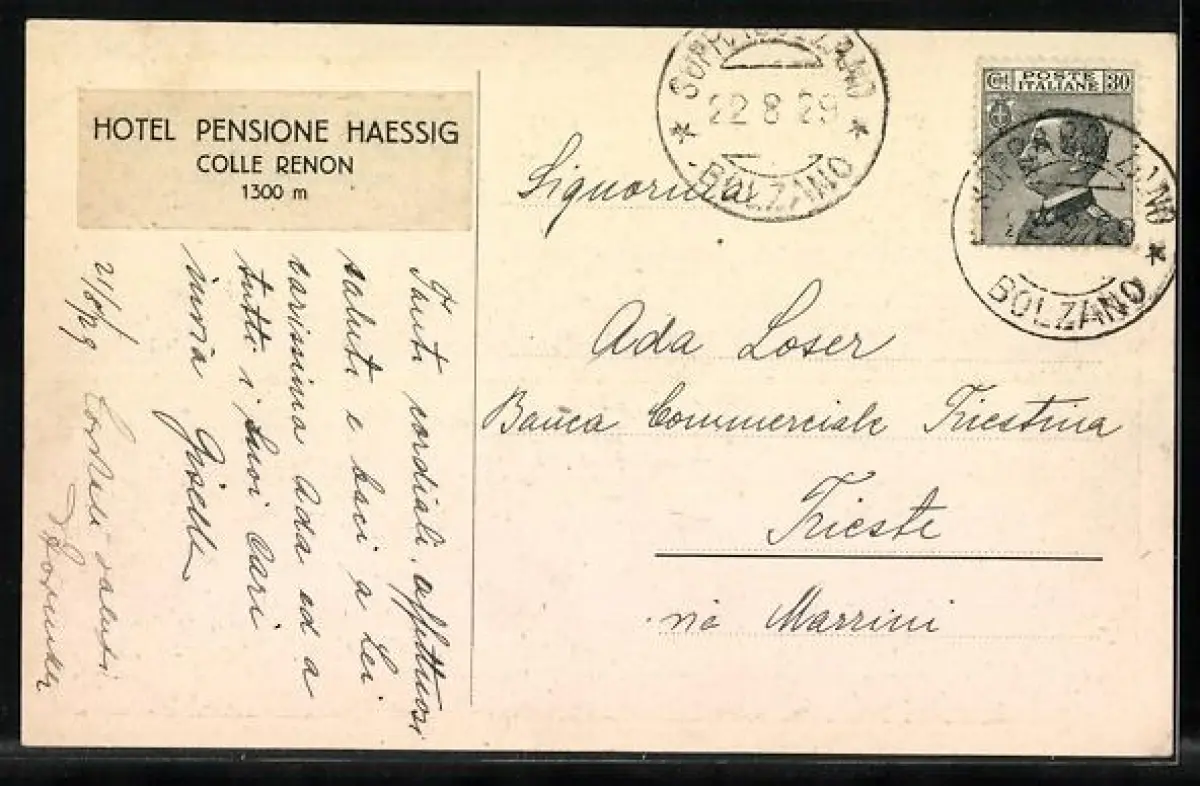 HOTEL PENSIONE HAESSIG
COLLE RENON
1300 m
Tanti cordiali, affettuosi
saluti e baci a Lei
carissima Ada ed a
tutti i Suoi Cari
invia Gisella
21/8/29 Cordiali saluti
SOPRABOLZANO
22 8 29
BOLZANO
Cmi POSTE ITALIANE 30
BOLZANO
Signorina
Ada Loser
Banca Commerciale Triestina
Trieste
via Mazzini